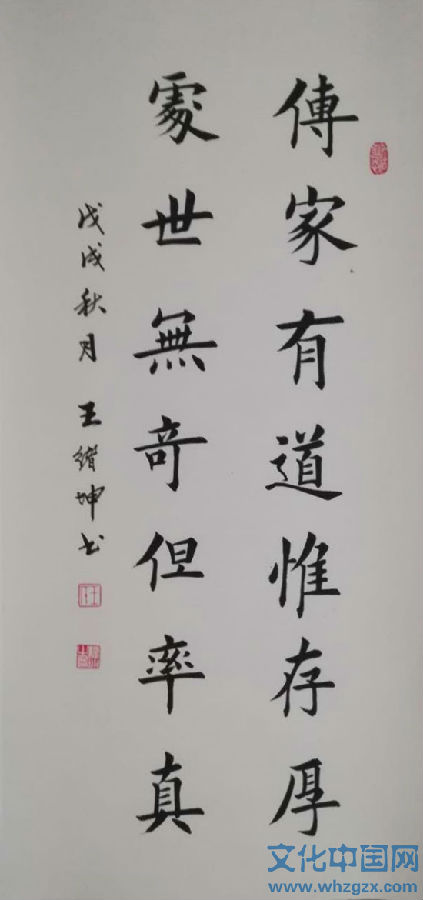 傳家有道惟存厚
處世無奇但率真
戊戌秋月 王緒坤书
文化中国网
www.whzgzx.com